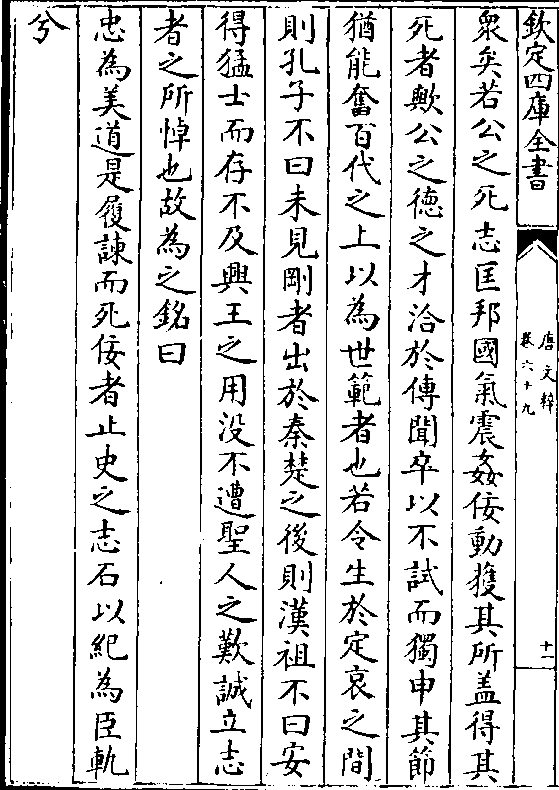 欽定四庫全書
唐文粹
卷六十九
十一
衆矣若公之死志匡邦國氣震姦佞動獲其所盖得其
死者歟公之徳之才洽於傳聞卒以不試而獨申其節
猶能奮百代之上以為世範者也若令生於定哀之間
則孔子不曰未見剛者出於秦楚之後則漢祖不曰安
得猛士而存不及興王之用没不遭聖人之歎誠立志
者之所悼也故為之銘曰
忠為美道是履諫而死佞者止史之志石以紀為臣軌
兮